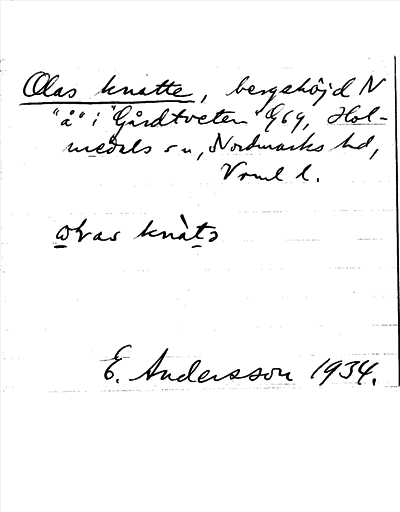 Olas knatte, bergshöjd N
"å" i "Gårdtveten" G69, Hol-
medals sn, Nordmarks hd,
Vrml l.
knàt
E. Andersson 1934.